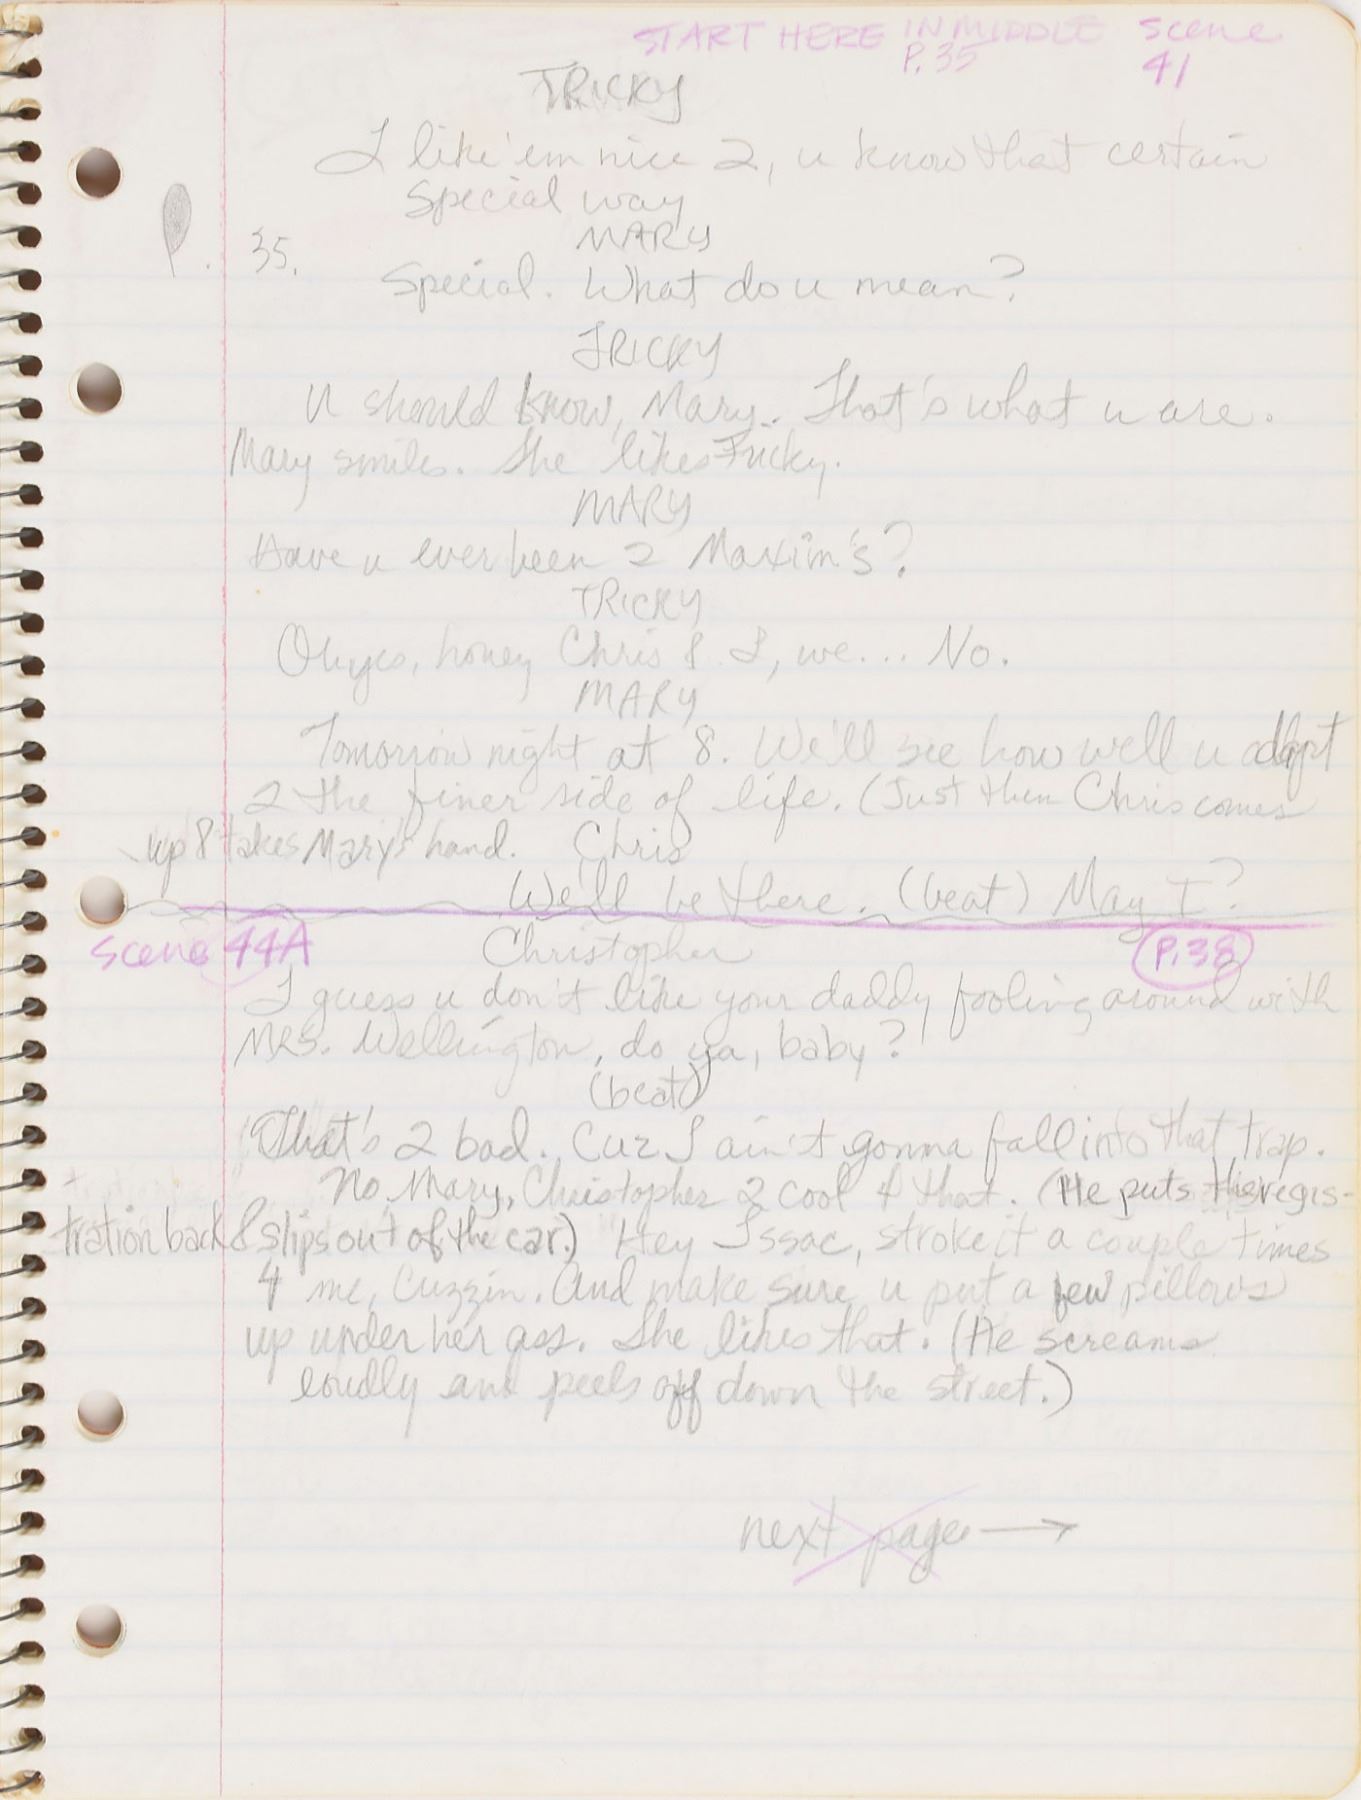 START HERE IN MIDDLE Scene
P.35 41
TRICKY
I like 'em nice 2, u know that certain
special way
MARY
P. 35.
Special. What do u mean?
TRICKY
U should know, Mary. That's what u are.
Mary smiles. She likes Tricky.
MARY
Have u ever been 2 Maxim's?
TRICKY
Oh yes, honey Chris & I, we... No.
MARY
Tomorrow night at 8. We'll see how well u adapt
2 the finer side of life. (Just then Chris comes
up & takes Mary's hand. Chris
We'll be there. (beat) May I?
Scene 44A Christopher P.38
I guess u don't like your daddy fooling around with
MRS. Wellington, do ya, baby?
(beat)
That's 2 bad. Cuz I ain't gonna fall into that trap.
No, Mary, Christopher 2 cool 4 that. (He puts the regis-
tration back & slips out of the car.) Hey Issac, stroke it a couple times
4 me, Cuzzin. And make sure u put a few pillows
up under her ass. She likes that. (He screams
loudly and peels off down the street.)
next page →